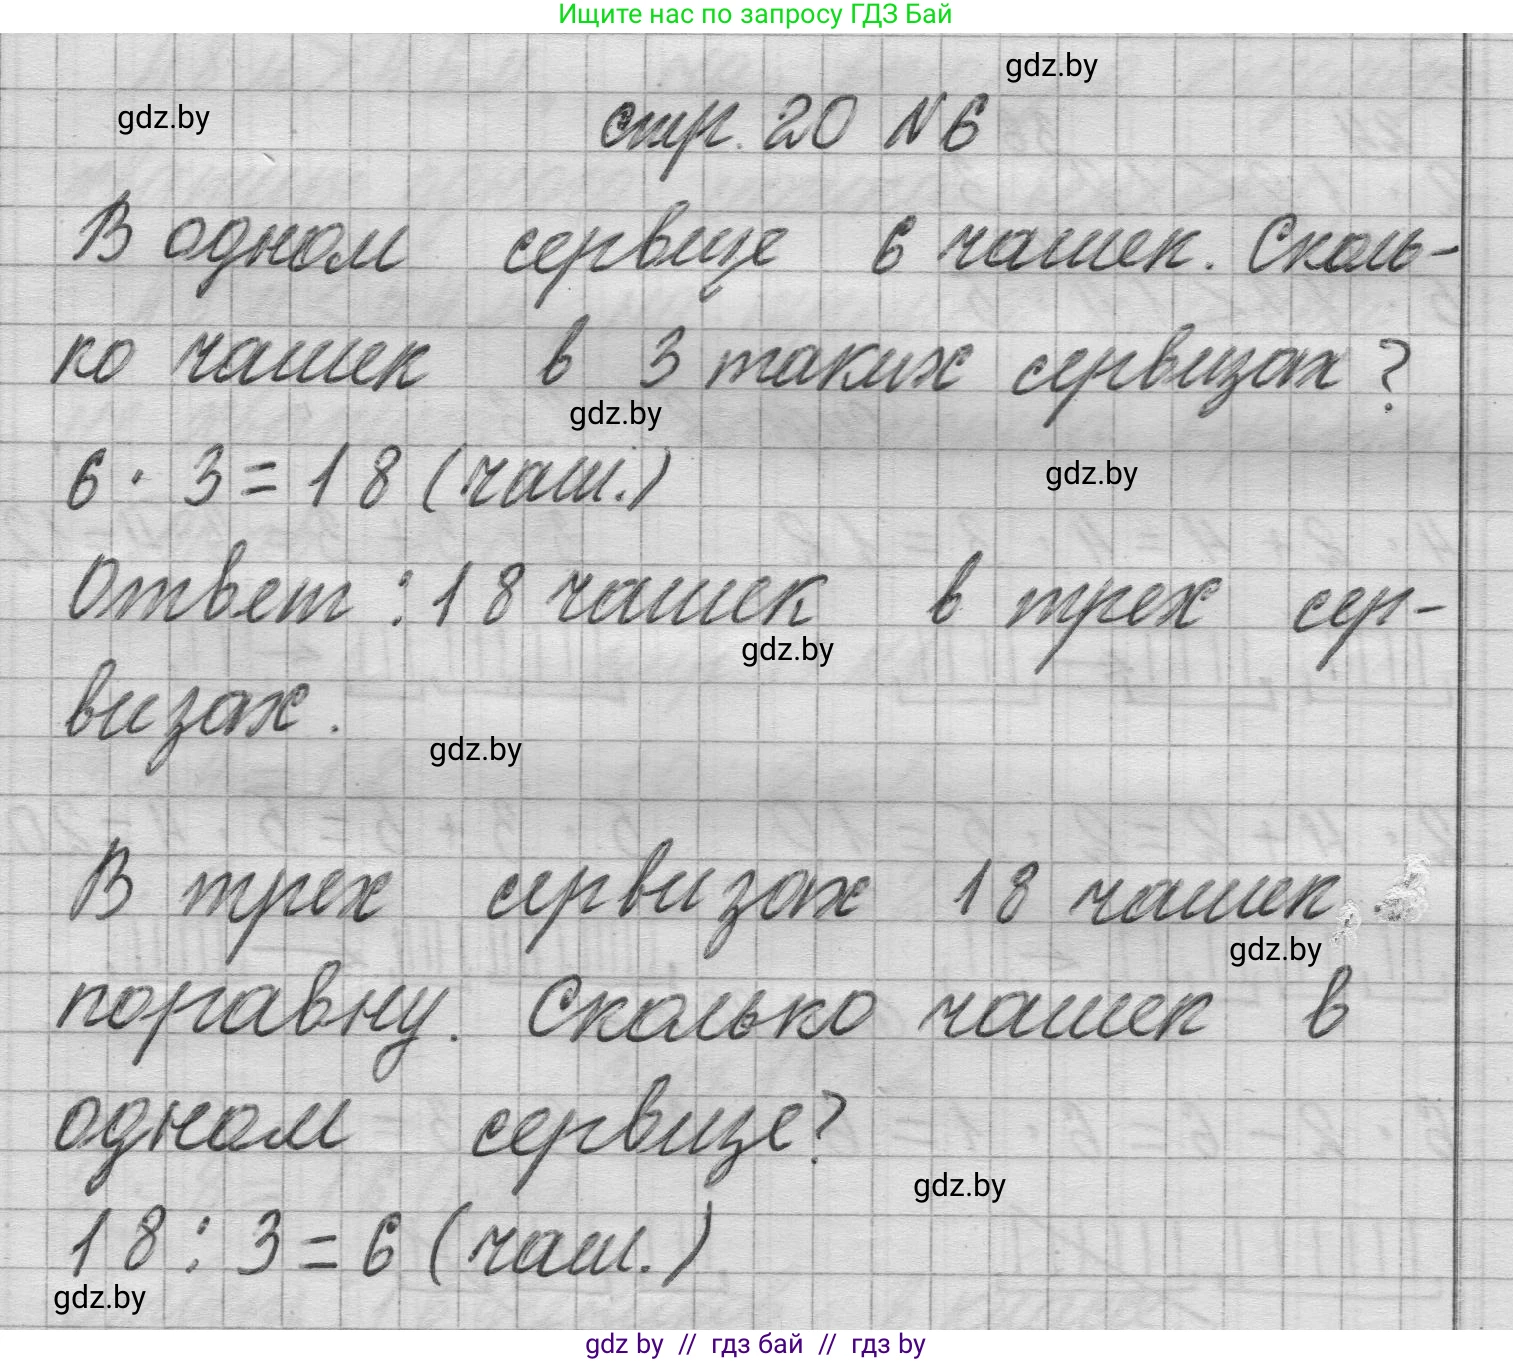 Ищите нас по запросу ГДЗ Бай
gdz.by
gdz.by
стр. 20 № 6
В одном сервизе 6 чашек. Сколь-
ко чашек в 3 таких сервизах?
gdz.by
6 · 3 = 18 (чаш.)
gdz.by
Ответ: 18 чашек в трех сер-
gdz.by
визах.
gdz.by
В трех сервизах 18 чашек
gdz.by
поравну. Сколько чашек в
одном сервизе?
gdz.by
18 : 3 = 6 (чаш.)
gdz.by
gdz by // гдз бай // гдз by